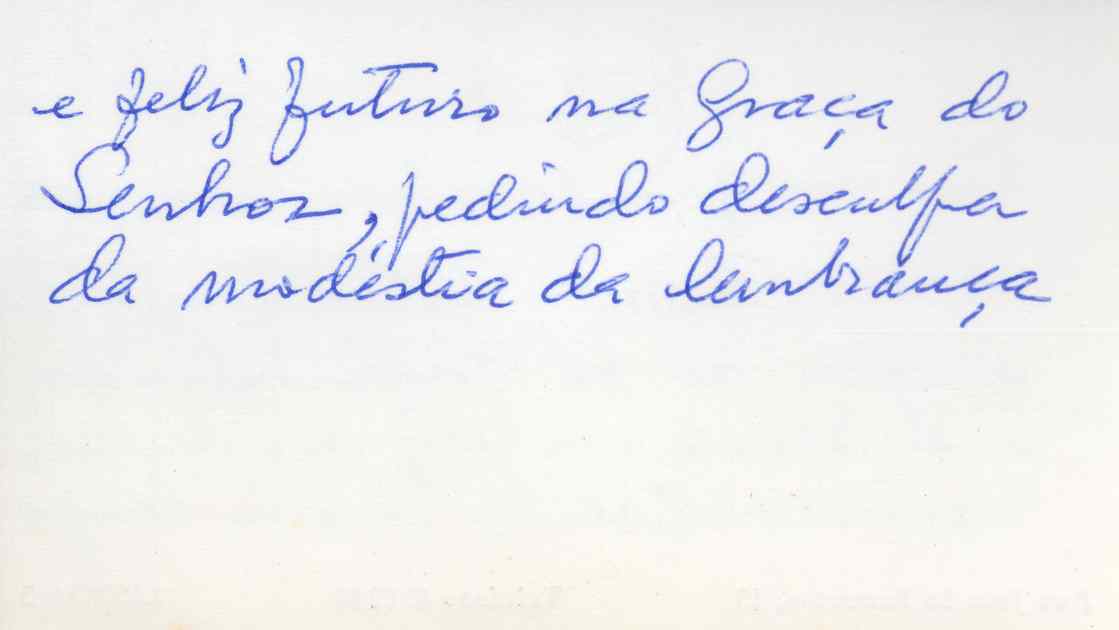 e feliz futuro na Graça do
Senhor, pedindo desculpa
da modéstia da lembrança